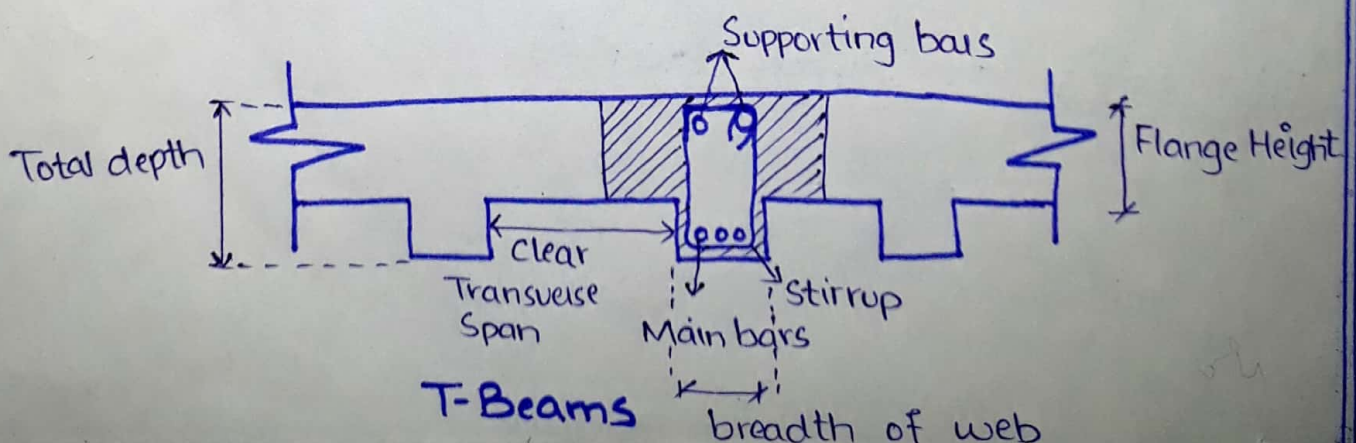 Supporting bars
Total depth
Flange Height
Clear
Transverse
Span
Stirrup
Main bars
T-Beams
breadth of web